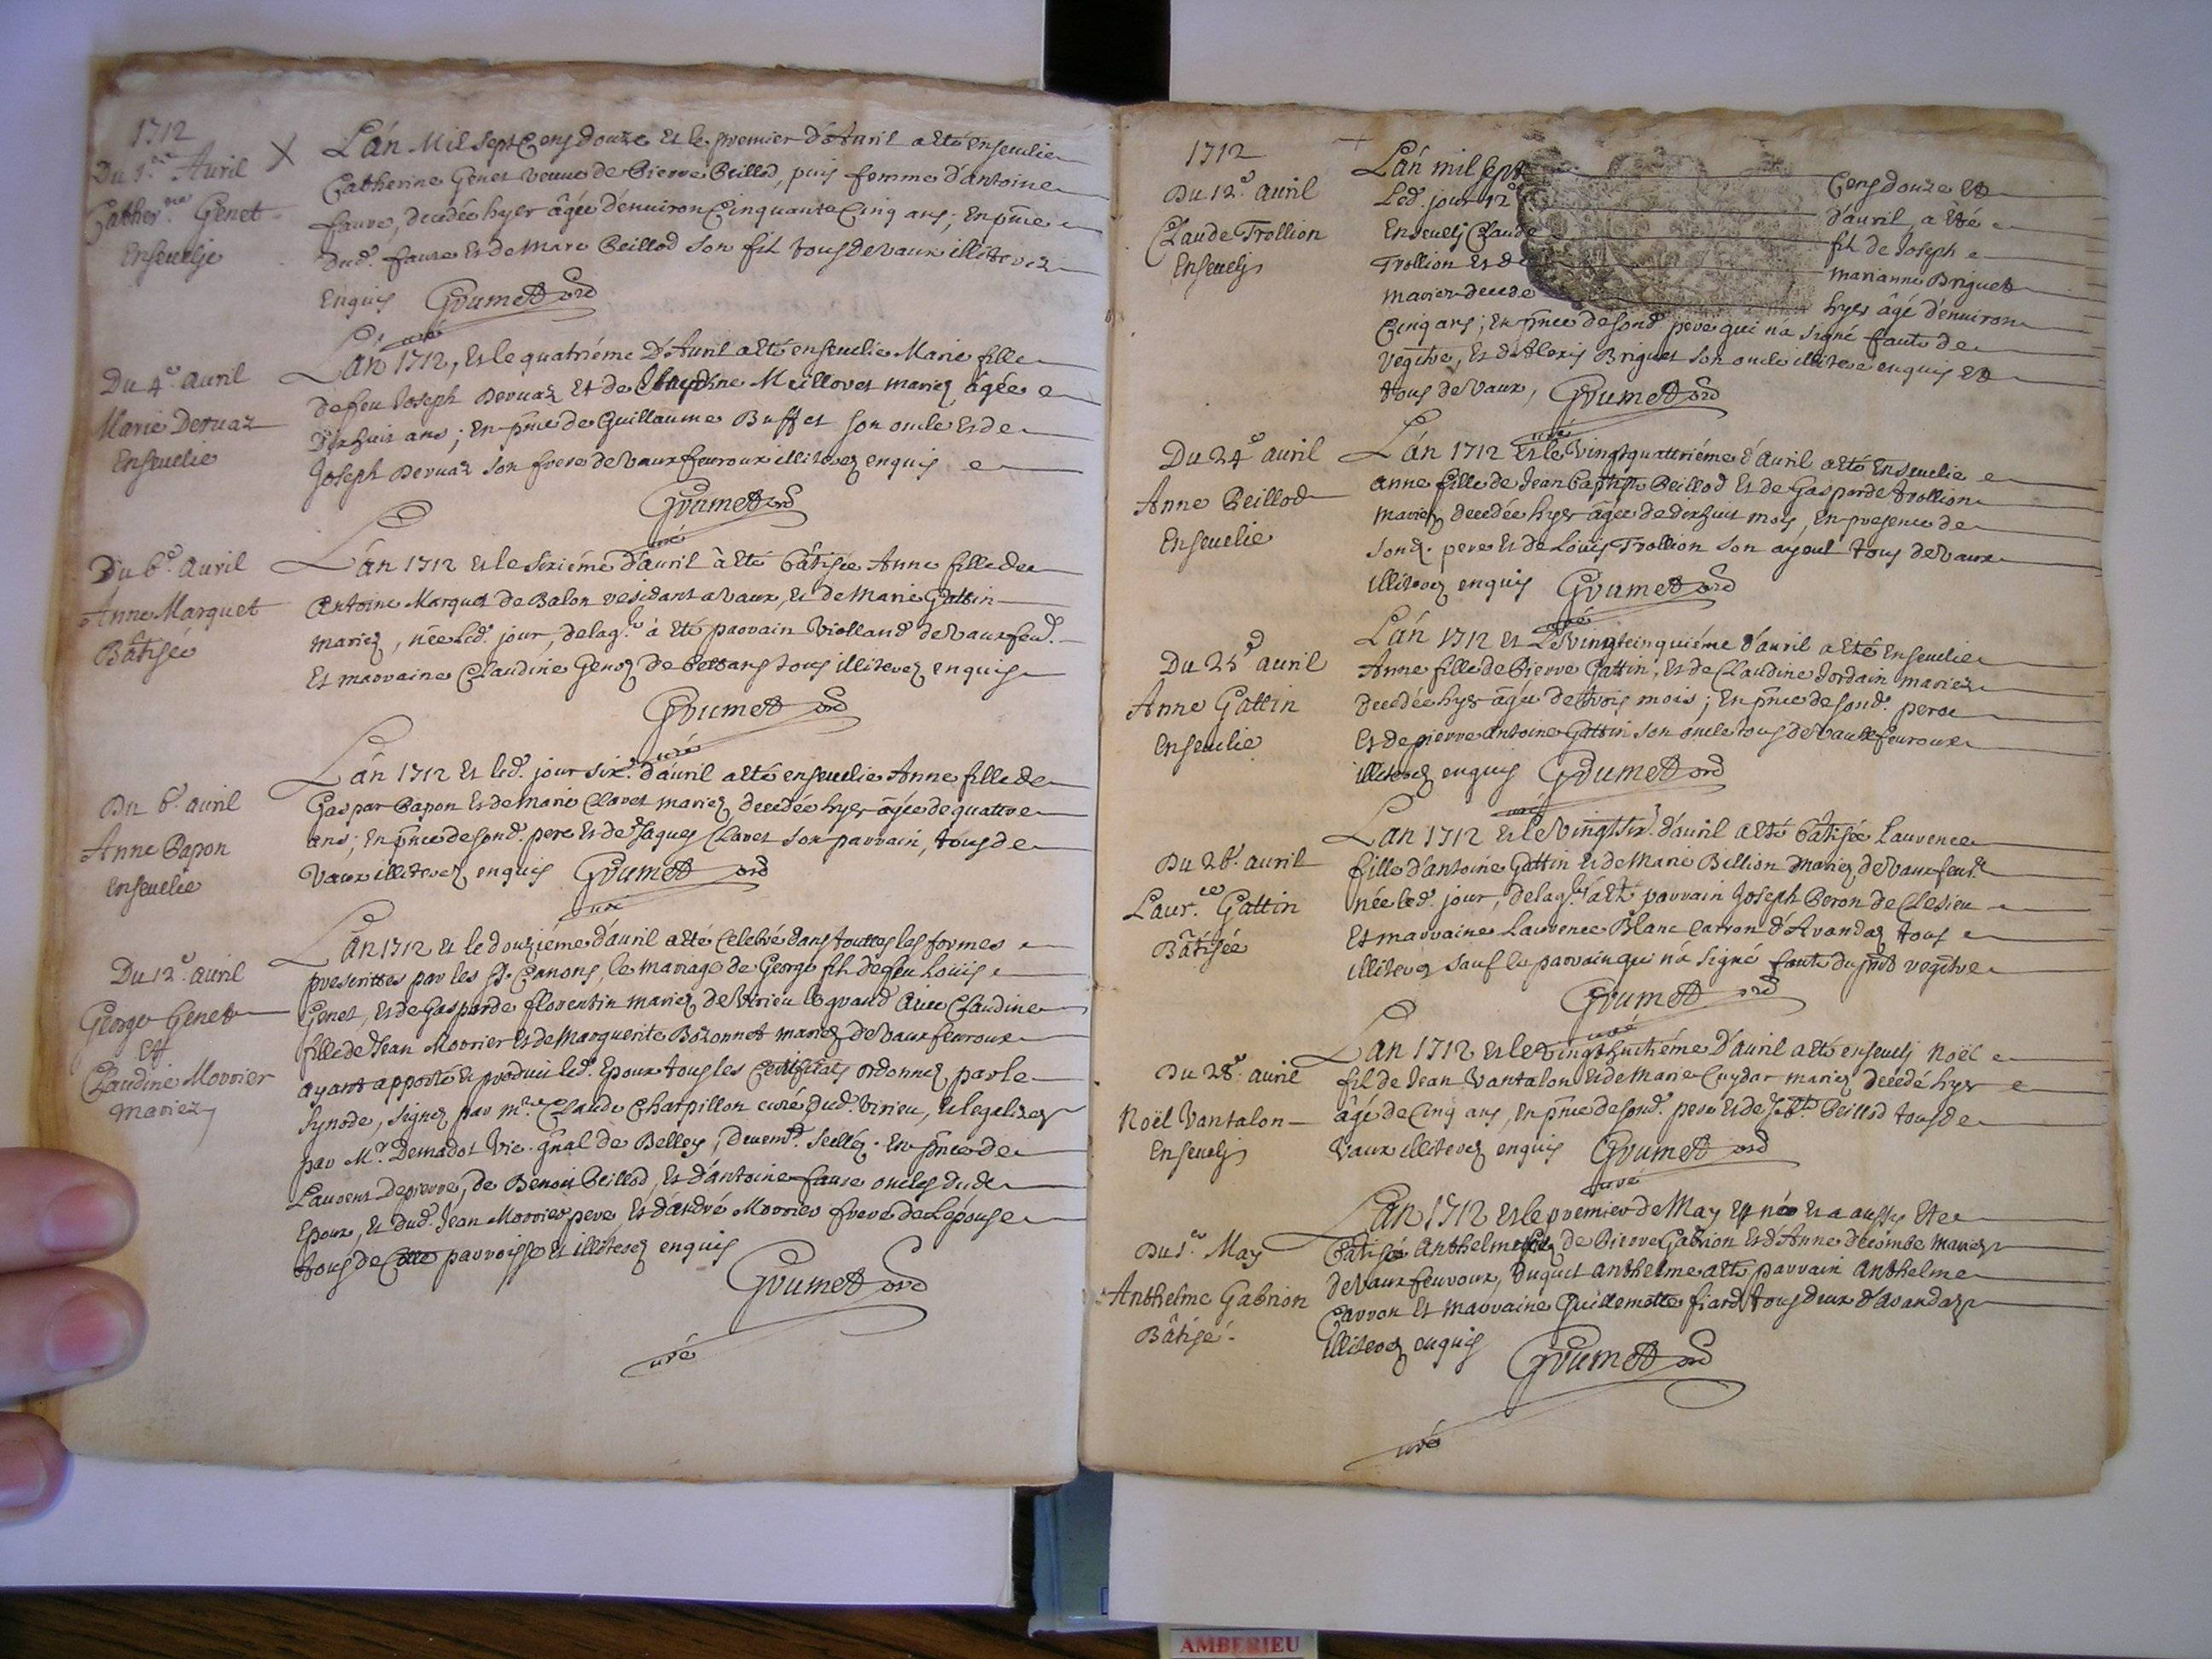 1712
Du 1.er Avril
Cather.ne Genet
Enseuelie
L'an Mil Sept Cens douze et le premier d'Auril a été enseuelie
Catherine Genet veuue de Pierre Peillod, puis femme d'antoine
faure, decedée hyer âgée d'enuiron Cinquante Cinq ans; en pñce
dud. faure et de Marc Peillod son fil tous de vaux illiterez
enquis Grumet
curé
Du 4.e auril
Marie Deruaz
Enseuelie
L'an 1712, et le quatriéme D'Auril a été enseuelie Marie fille
de feu Joseph Deruaz et de Meilloret mariez âgée
dixhuit ans; en pñce de Guillaume Buffet son oncle et de
Joseph Deruaz son frere de vaux feuroux illiterez enquis
Grumet
curé
Du 6.e auril
Anne Marquet
Bâtisée
L'an 1712 et le Sixiéme d'auril à été bâtisée Anne fille de
Antoine Marquet de Balon residant a vaux, et de Marie Gattin
mariez, née led. jour, de lag.le à été parrain Violland de vaux feu.
et marraine Claudine Genoz de tous illiterez enquis
Grumet
curé
Du 6.e auril
Anne Papon
enseuelie
L'an 1712 et led. jour six.e d'auril a été enseuelie Anne fille de
Gaspar Papon et de Marie Claret mariez decedée hyer âgée de quattre
ans; en pñce de sond. pere et de Jaques Claret son parrain, tous de
Vaux illiterez enquis Grumet
curé
Du 12.e auril
George Genet
et
Claudine Morrier
mariez
L'an 1712 et le douziéme d'auril a été Celebré dans touttes les formes
prescrittes par les S.ts Canons, le mariage de George fil de feu Louis
Genet, et de Gasparde florentin mariez de Virieu le grand auec Claudine
fille de Jean Morrier et de Marguerite Bozonnet mariez de vaux feuroux
ayant apporté et produit led. Epoux tous les Certificats ordonnez par le
Synode, signez par m.re Claude Chatpillon curé dud. Virieu, et legalisez
par M.r Demadot Vic. gñal de Belley, deuem.t Scellez. en pñce de
Laurent depierre, de Benoit Peillod, et d'antoine faure oncles dud.
Epoux, et dud. Jean Morrier pere et d'andré Morrier frere de L'épouse
tous de Cette parroisse et illiterez enquis
Grumet
curé
1712
Du 12.e auril
Claude Trollion
Enseuely
L'an mil sept Cens douze et
Led. jour 12.e d'auril a été
Enseuely Claude fil de Joseph
Trollion et de marianne Briguet
mariez decedé hyer âgé d'enuiron
Cinq ans; en pñce de sond. pere qui n'a signé faute de
regître, et d'Alexis Briguet son oncle illiteré enquis et
tous de vaux, Grumet
curé
Du 24.e auril
Anne Peillod
Enseuelie
L'an 1712 et le Vingtquattriéme d'auril a été Enseuelie
anne fille de Jean baptiste Peillod et de Gasparde trollion
mariez decedée hyer âgée de dixhuit mois, en presence de
sond. pere et de Loüis Trollion son ayeul tous de vaux
illiterez enquis Grumet
curé
Du 25.e auril
Anne Gattin
enseuelie
L'an 1712 et Le Vingtcinquiéme d'auril a été Enseuelie
Anne fille de Pierre Gattin, et de Claudine Jordain mariez
decedée hyer âgée de trois mois; en pñce de sond. pere
et de pierre antoine Gattin son oncle tous de vaux feuroux
illiterez enquis Grumet
curé
Du 26.e auril
Laur.ce Gattin
Bâtisée
L'an 1712 et le Vingt six.e d'auril a été bâtisée Laurence
fille d'antoine Gattin et de Marie Billion mariez de vaux feur.
née led. jour, de lag.le a été parrain Joseph Peron de Clesieu
et marraine Laurence Blanc Carron d'Avandaz tous
illiterez sauf le parrain qui n'a signé faute du pñt regître
Grumet
curé
Du 28.e auril
Noël Vantalon
Enseuely
L'an 1712 et le Vingthuitiéme D'auril a été enseuely Noël
fil de Jean Vantalon et de Marie mariez decedé hyer
âgé de Cinq ans, en pñce de sond. pere et de Peillod tous de
Vaux illiterez enquis Grumet
curé
Du 1.er May
Anthelme Gabrion
Bâtisé
L'an 1712 et le premier de May est né et a aussy été
bâtisé Anthelme fil de Pierre Gabrion et d'Anne decombe mariez
de vaux feuroux, duquel anthelme a été parrain Anthelme
Carron et marraine Guillemette fiard tous deux d'Avandaz
illiterez enquis
Grumet
curé
AMBERIEU